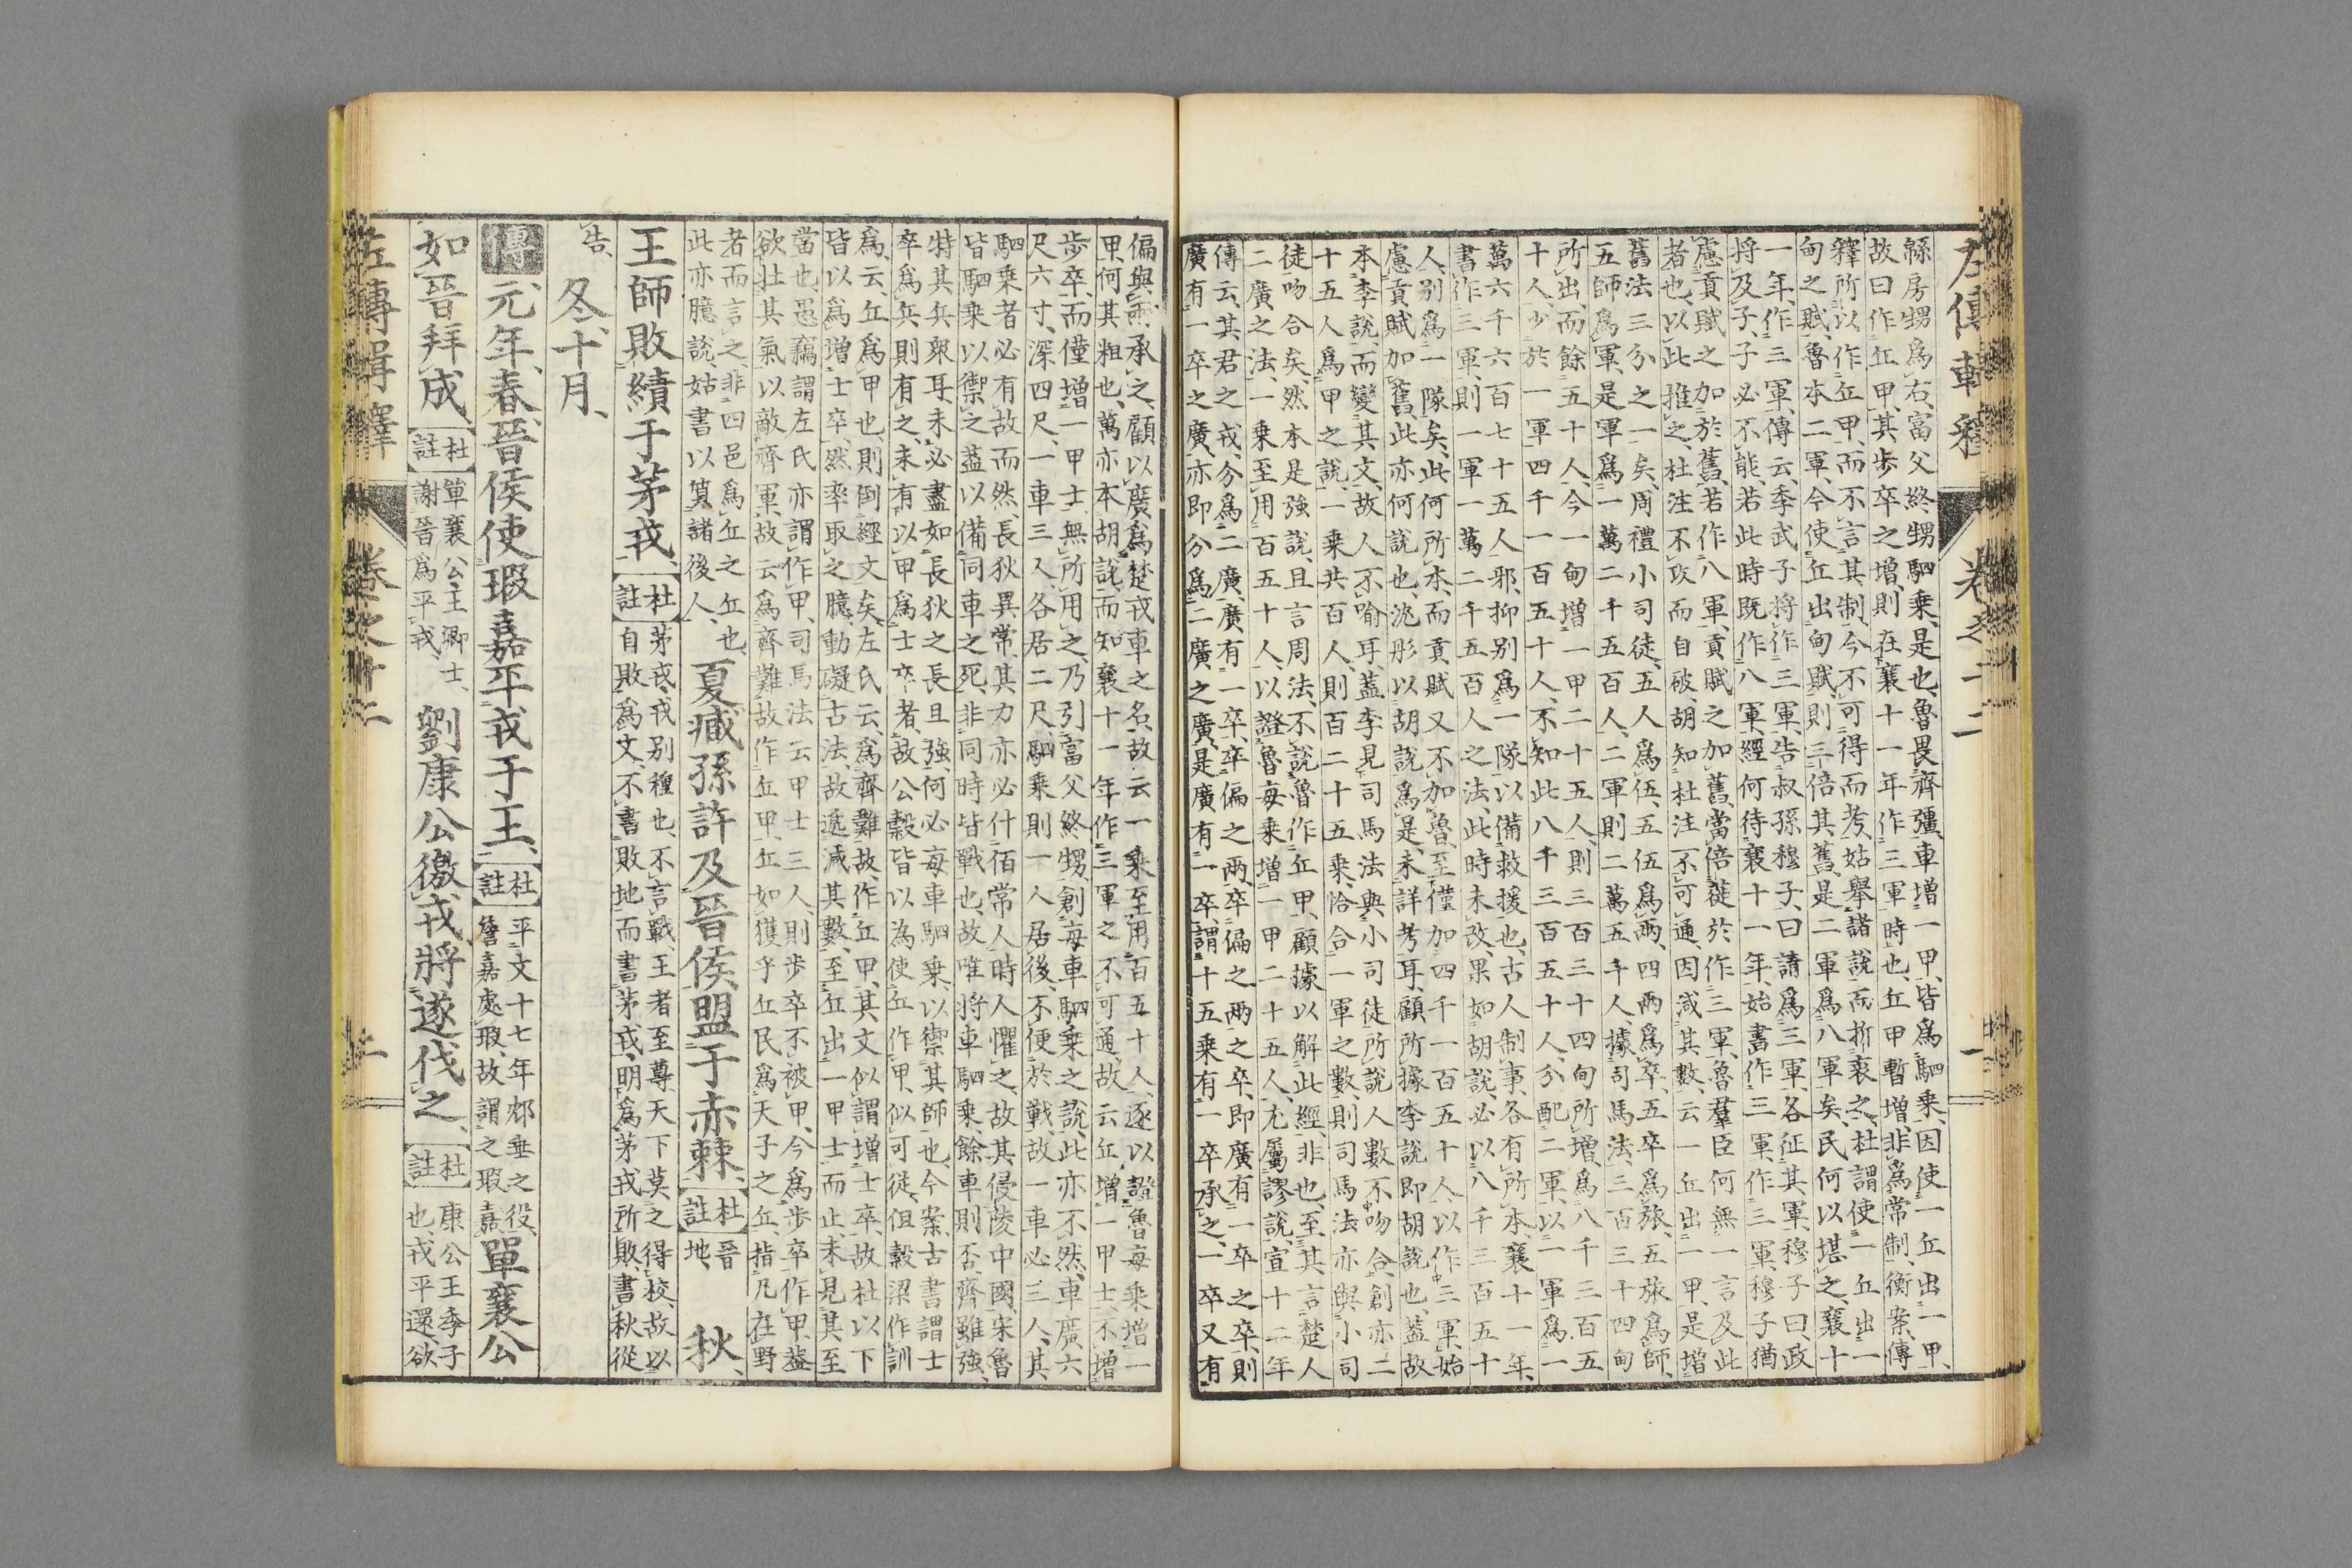 左傳輯釋
卷之十二
一
緜房甥爲右、富父終甥駟乗、是也、魯畏齊彊、車增一甲、皆爲駟乗、因使一丘出一甲、
故曰作丘甲、其歩卒之增、則在襄十一年作三軍時也、丘甲暫增、非爲常制、衡案、傳
釋所以作丘甲、而不言其制、今不可得而考、姑舉諸說而折衷之、杜謂使一丘出一
甸之賦、魯本二軍、今使丘出甸賦、則三倍其舊、是二軍爲八軍矣、民何以堪之、襄十
一年、作三軍、傳云、季武子將作三軍、告叔孫穆子、曰請爲三軍各征其軍、穆子曰、政
將及子、子必不能、若此時既作八軍、經何待襄十一年、始書作三軍、作三軍、穆子猶
慮貢賦之加於舊、若作八軍、貢賦之加舊、當倍蓰於作三軍、魯羣臣何無一言及此
者也、以此推之、杜注不攻而自破、胡知杜注不可通、因減其數、云一丘出一甲、是增
舊法三分之一矣、周禮小司徒、五人爲伍、五伍爲兩、四兩爲卒、五卒爲旅、五旅爲師、
五師爲軍、是軍爲一萬二千五百人、二軍則二萬五千人、據司馬法、三百三十四甸
所出、而餘五十人、今一甸增一甲二十五人、則三百三十四甸所增、爲八千三百五
十人、少於一軍四千一百五十人、不知此八千三百五十人、分配二軍、以一軍爲一
萬六千六百七十五人邪、抑別爲一隊以備救援也、古人制事、各有所本、襄十一年、
書作三軍、則一軍一萬二千五百人之法、此時未改、果如胡說、必以八千三百五十
人、別爲一隊矣、此何所本、而貢賦又不加、魯至僅加四千一百五十人、以作三軍、始
慮貢賦加舊、此亦何說也、沈彤以胡說爲是、未詳考耳、顧所據李說即胡說也、蓋故
本李說、而變其文、故人不喩耳、蓋李見司馬法與小司徒所說人數不吻合、創亦二
十五人爲甲之說、一乗共百人、則百二十五乗、恰合一軍之數、則司馬法亦與小司
徒吻合矣、然本是強說、且言周法、不說魯作丘甲、顧據以解此經、非也、至其言楚人
二廣之法、一乗至用百五十人、以證魯毎乗增一甲二十五人、尤屬謬說、宣十二年
傳云、其君之戎、分爲二廣、廣有一卒、卒偏之兩、卒偏之兩之卒、即廣有一卒之卒、則
廣有一卒之廣、亦即分爲二廣之廣、是廣有一卒、謂十五乗有一卒承之、一卒又有
偏與兩承之、顧以廣爲楚戎車之名、故云一乗至用百五十人、遂以證魯毎乗增一
甲、何其粗也、萬亦本胡說、而知襄十一年作三軍之不可通、故云丘增一甲士、不增
歩卒、而僅增一甲士、無所用之、乃引富父終甥、創毎車駟乗之說、此亦不然、車廣六
尺六寸、深四尺、一車三人各居二尺、駟乗則一人居後、不便於戰、故一車必三人、其
駟乗者必有故而然、長狄異常、其力亦必什佰常人、時人懼之、故其侵陵中國、宋魯
皆駟乗以禦之、蓋以備同車之死、非同時皆戰也、故唯將車駟乗、餘車則否、齊雖強、
特其兵衆耳、未必盡如長狄之長且強、何必毎車駟乗、以禦其師也、今案、古書謂士
卒爲兵、則有之、未有以甲爲士卒者、故公穀皆以為使丘作甲、似可從、但穀梁作訓
爲、云、丘爲甲也、則倒經文矣、左氏云、爲齊難故、作丘甲、其文似謂增士卒、故杜以下
皆以爲增士卒、然率取之臆、動礙古法、故遞減其數、至丘出一甲士而止、未見其至
當也、愚竊謂左氏亦謂作甲、司馬法云甲士三人、則歩卒不被甲、今爲歩卒作甲、蓋
欲壯其氣以敵齊軍、故云爲齊難故作丘甲、丘如獲乎丘民爲天子之丘、指凡在野
者而言之、非四邑爲丘之丘也、
此亦臆說、姑書以質諸後人、
夏、臧孫許及晉侯盟于赤棘、
杜註
晉地、
秋、
王師敗績于茅戎、
杜註
茅戎、戎别種也、不言戰、王者至尊、天下莫之得校、故以
自敗爲文、不書敗地、而書茅戎、明爲茅戎所敗、書秋從
告、
冬、十月、
傳
元年、春、晉侯使瑕嘉平戎于王、
杜註
平文十七年郊垂之役、
詹嘉處瑕、故謂之瑕嘉、
單襄公
如晉拜成、
杜註
單襄公王卿士、
謝晉爲平戎、
劉康公徼戎、將遂伐之、
杜註
康公王季子
也、戎平還、欲
左傳輯釋
卷之十二
二